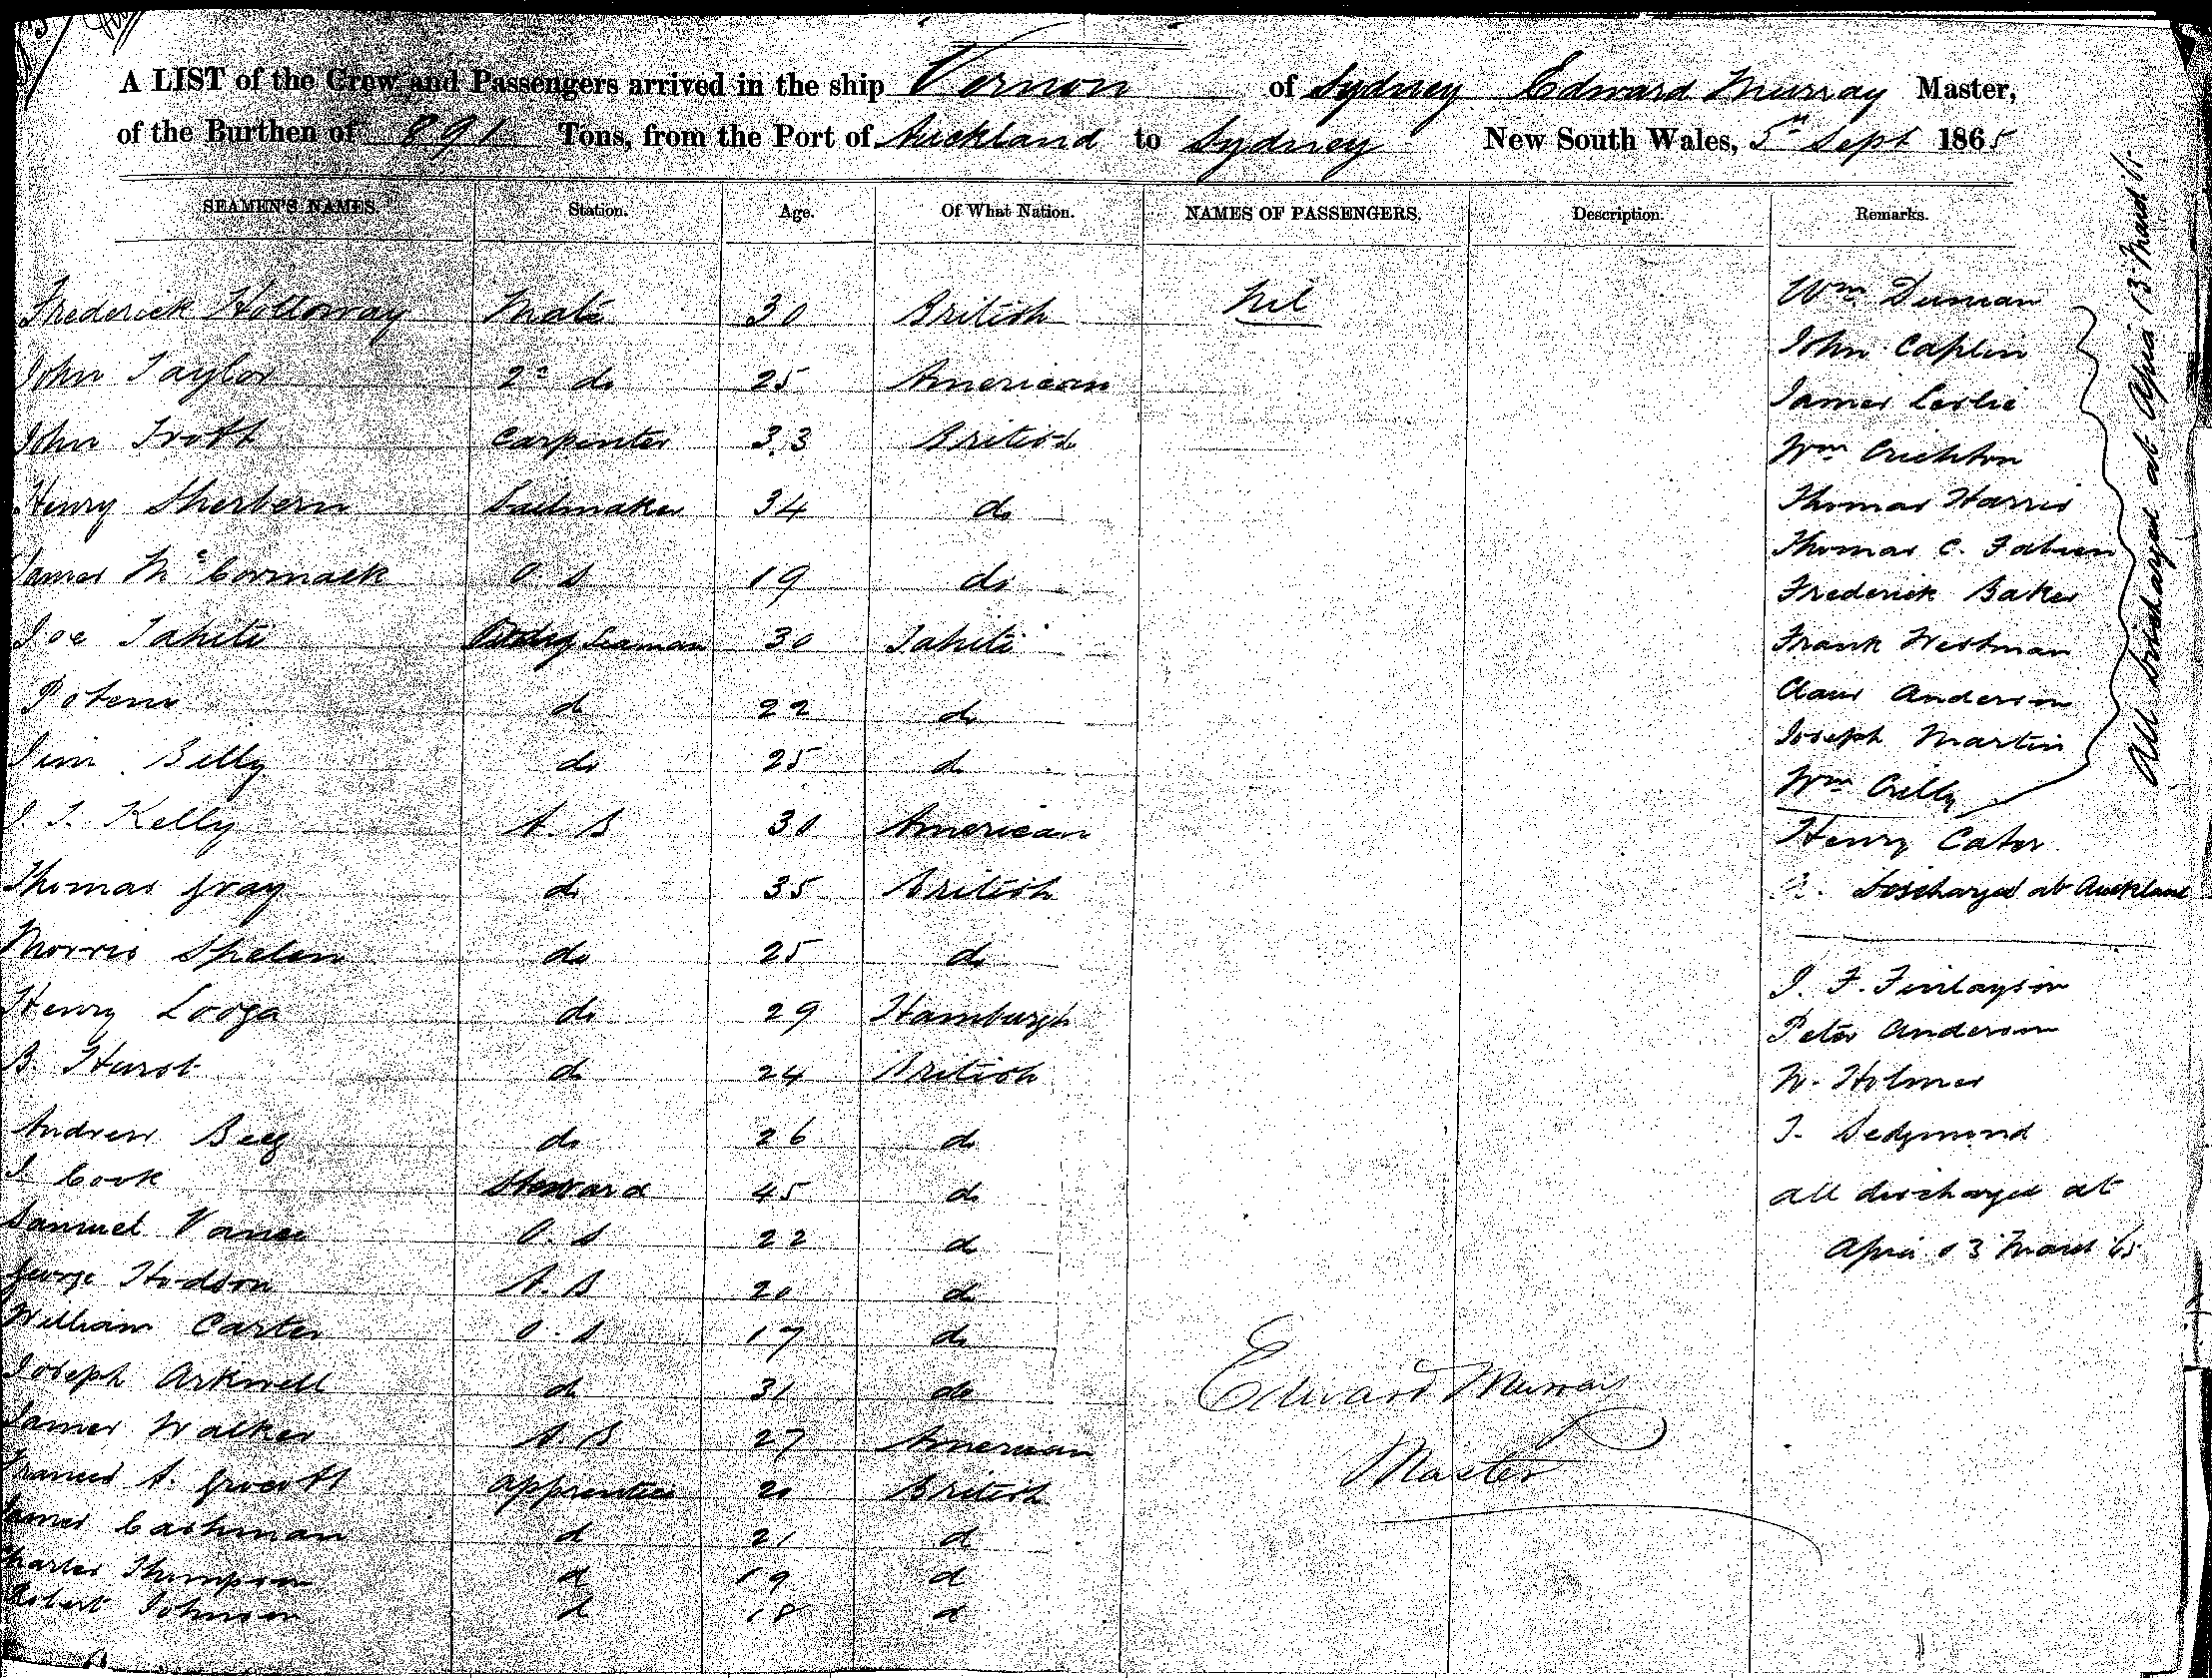 A LIST of the Crew and Passengers arrived in the ship Vernon of Sydney Edward Murray Master,
of the Burthen of 891 Tons, from the Port of Auckland to Sydney New South Wales, 5th Sept 1865
SEAMEN'S NAMES. Station. Age. Of What Nation. NAMES OF PASSENGERS. Description. Remarks.
Frederick Holloway Mate 30 British Nil
John Taylor 2d do 25 American
John Trott Carpenter 33 British
Henry Sherbern Sailmaker 34 do
James McCormack O.S 19 do
Joe Tahiti Seaman 30 Tahiti
Poteni do 22 do
Jim Billy do 25 do
J. T. Kelly A.B 30 American
Thomas Gray do 35 British
Morris do 25 do
Henry Looga do 29 Hamburgh
B. Hurst do 24 British
Andrew Beeg do 26 do
J. Cook Steward 45 do
Samuel Vance O.S 22 do
George Hodson A.B 20 do
William Carter O.S 17 do
Joseph Arkwell do 31 do
James Walker A.B 27 American
Francis A. Apprentice 20 British
James Cashman do 21 do
Charles Thompson do 19 do
Robert Johnson do 18 do
Wm Duncan
John Caplin
James Leslie
Wm Crichton
Thomas Harris
Thomas C. Fabien
Frederick Baker
Frank Westman
Claus Anderson
Joseph Martin
Wm Crilly
All discharged at Apia 13 March 65
Henry Cater
Discharged at Auckland
J. F. Finlayson
Peter Anderson
W. Holmes
T. Sedgmond
all discharged at
Apia 13 March 65
Edward Murray
Master